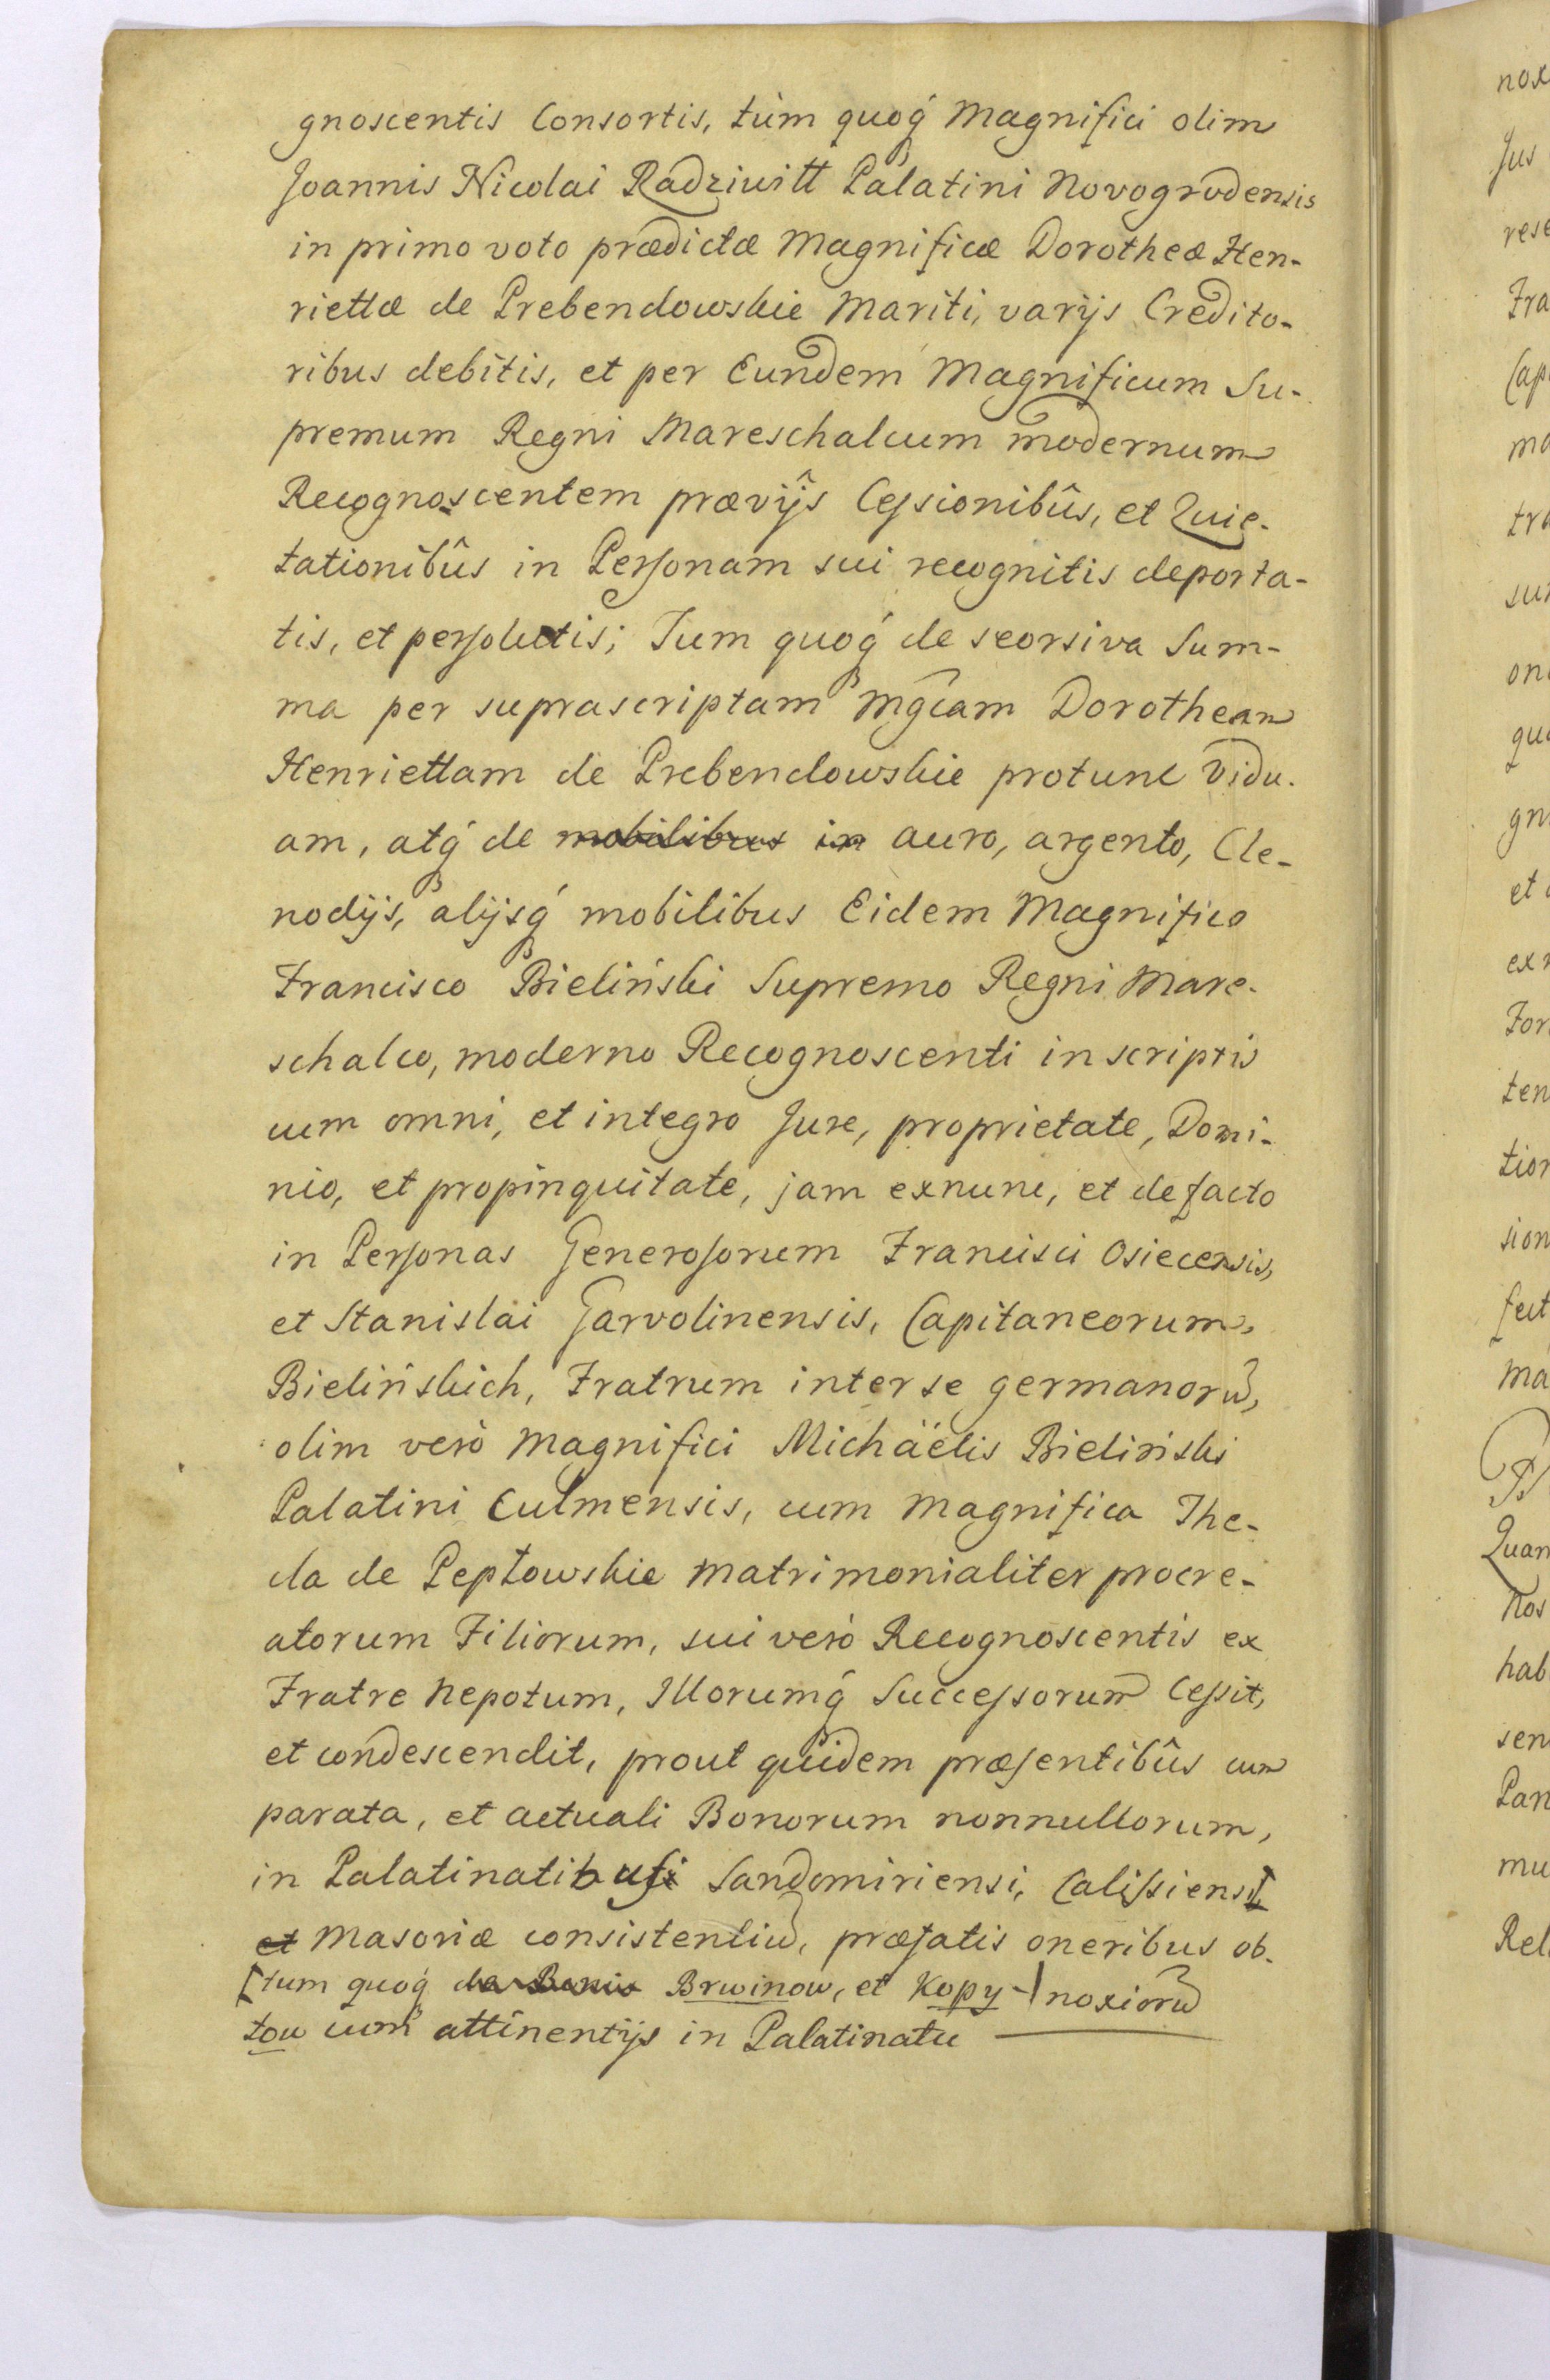 gnoscentis Consortis, tùm quoq́ Magnifici olim
Joannis Nicolai Radziwiłł Palatini Novogrodensis
in primo voto prædictæ Magnificæ Dorotheæ Hen-
riettæ de Prebendowskie Mariti, varijs Credito-
ribus debitis, et per Eundem Magnificum Su-
premum Regni Mareschalcum modernum
Recognoscentem prævijs Cessionibûs, et Quie-
tationibûs in Personam sui recognitis deporta-
tis, et persolutis; Tum quoq́ de seorsiva Sum-
ma per suprascriptam Mg̃cam Dorotheam
Henriettam de Prebendowskie protunc Vidu-
am, atq́ de mobilibus in auro, argento, Cle-
nodijs, alijsq́ mobilibus Eidem Magnifico
Francisco Bieliński Supremo Regni Mare-
schalco, moderno Recognoscenti inscriptis
cum omni, et integro Jure, proprietate, Domi-
nio, et propinquitate, jam exnunc, et defacto
in Personas Generosorum Francisci Osiecensis,
et Stanislai Garvolinensis, Capitaneorum,
Bielińskich, Fratrum inter se germanorũ,
olim verò Magnifici Michäelis Bieliński
Palatini Culmensis, cum Magnifica The-
cla de Pepłowskie matrimonialiter procre-
atorum Filiorum, sui verò Recognoscentis ex
Fratre Nepotum, Illorumq́ Successorum Cessit,
et condescendit, prout quidem præsentibûs cum
parata, et actuali Bonorum nonnullorum,
in Palatinatibus Sandomiriensi, Calissiensi
et Masoviæ consistentiũ, præfatis oneribus ob-
[tum quoq́ de Bonis Brwinow, et Kopy-] noxiorũ
tow cum attinentijs in Palatinatu
nox
Jus
rese
Fra
Cap
ma
tra
sun
on
qu
gn
et
ex
For
ten
tion
sion
fect
ma
Quan
Nos
hab
sen
Pan
mu
Rel